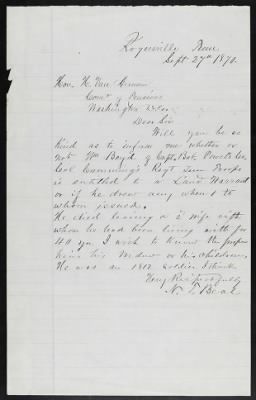 Rogersville Tenn.
Sept 27th 1870.
Hon. H. Van
Comr of Pensions
Washington
Dear Sir
Will you be so
kind as to inform me whether or
not Wm Boyd of Capt. Bob
Col Regt Tenn Troops
is entitled to a Land Warrant
or if he drew any when & to
whom issued.
He died leaving a 2 wife with
whom he had been living with for
44 yrs. I wish to know the
his Widow or his children.
He was an 1812 soldier I think
Very Respectfully
N.